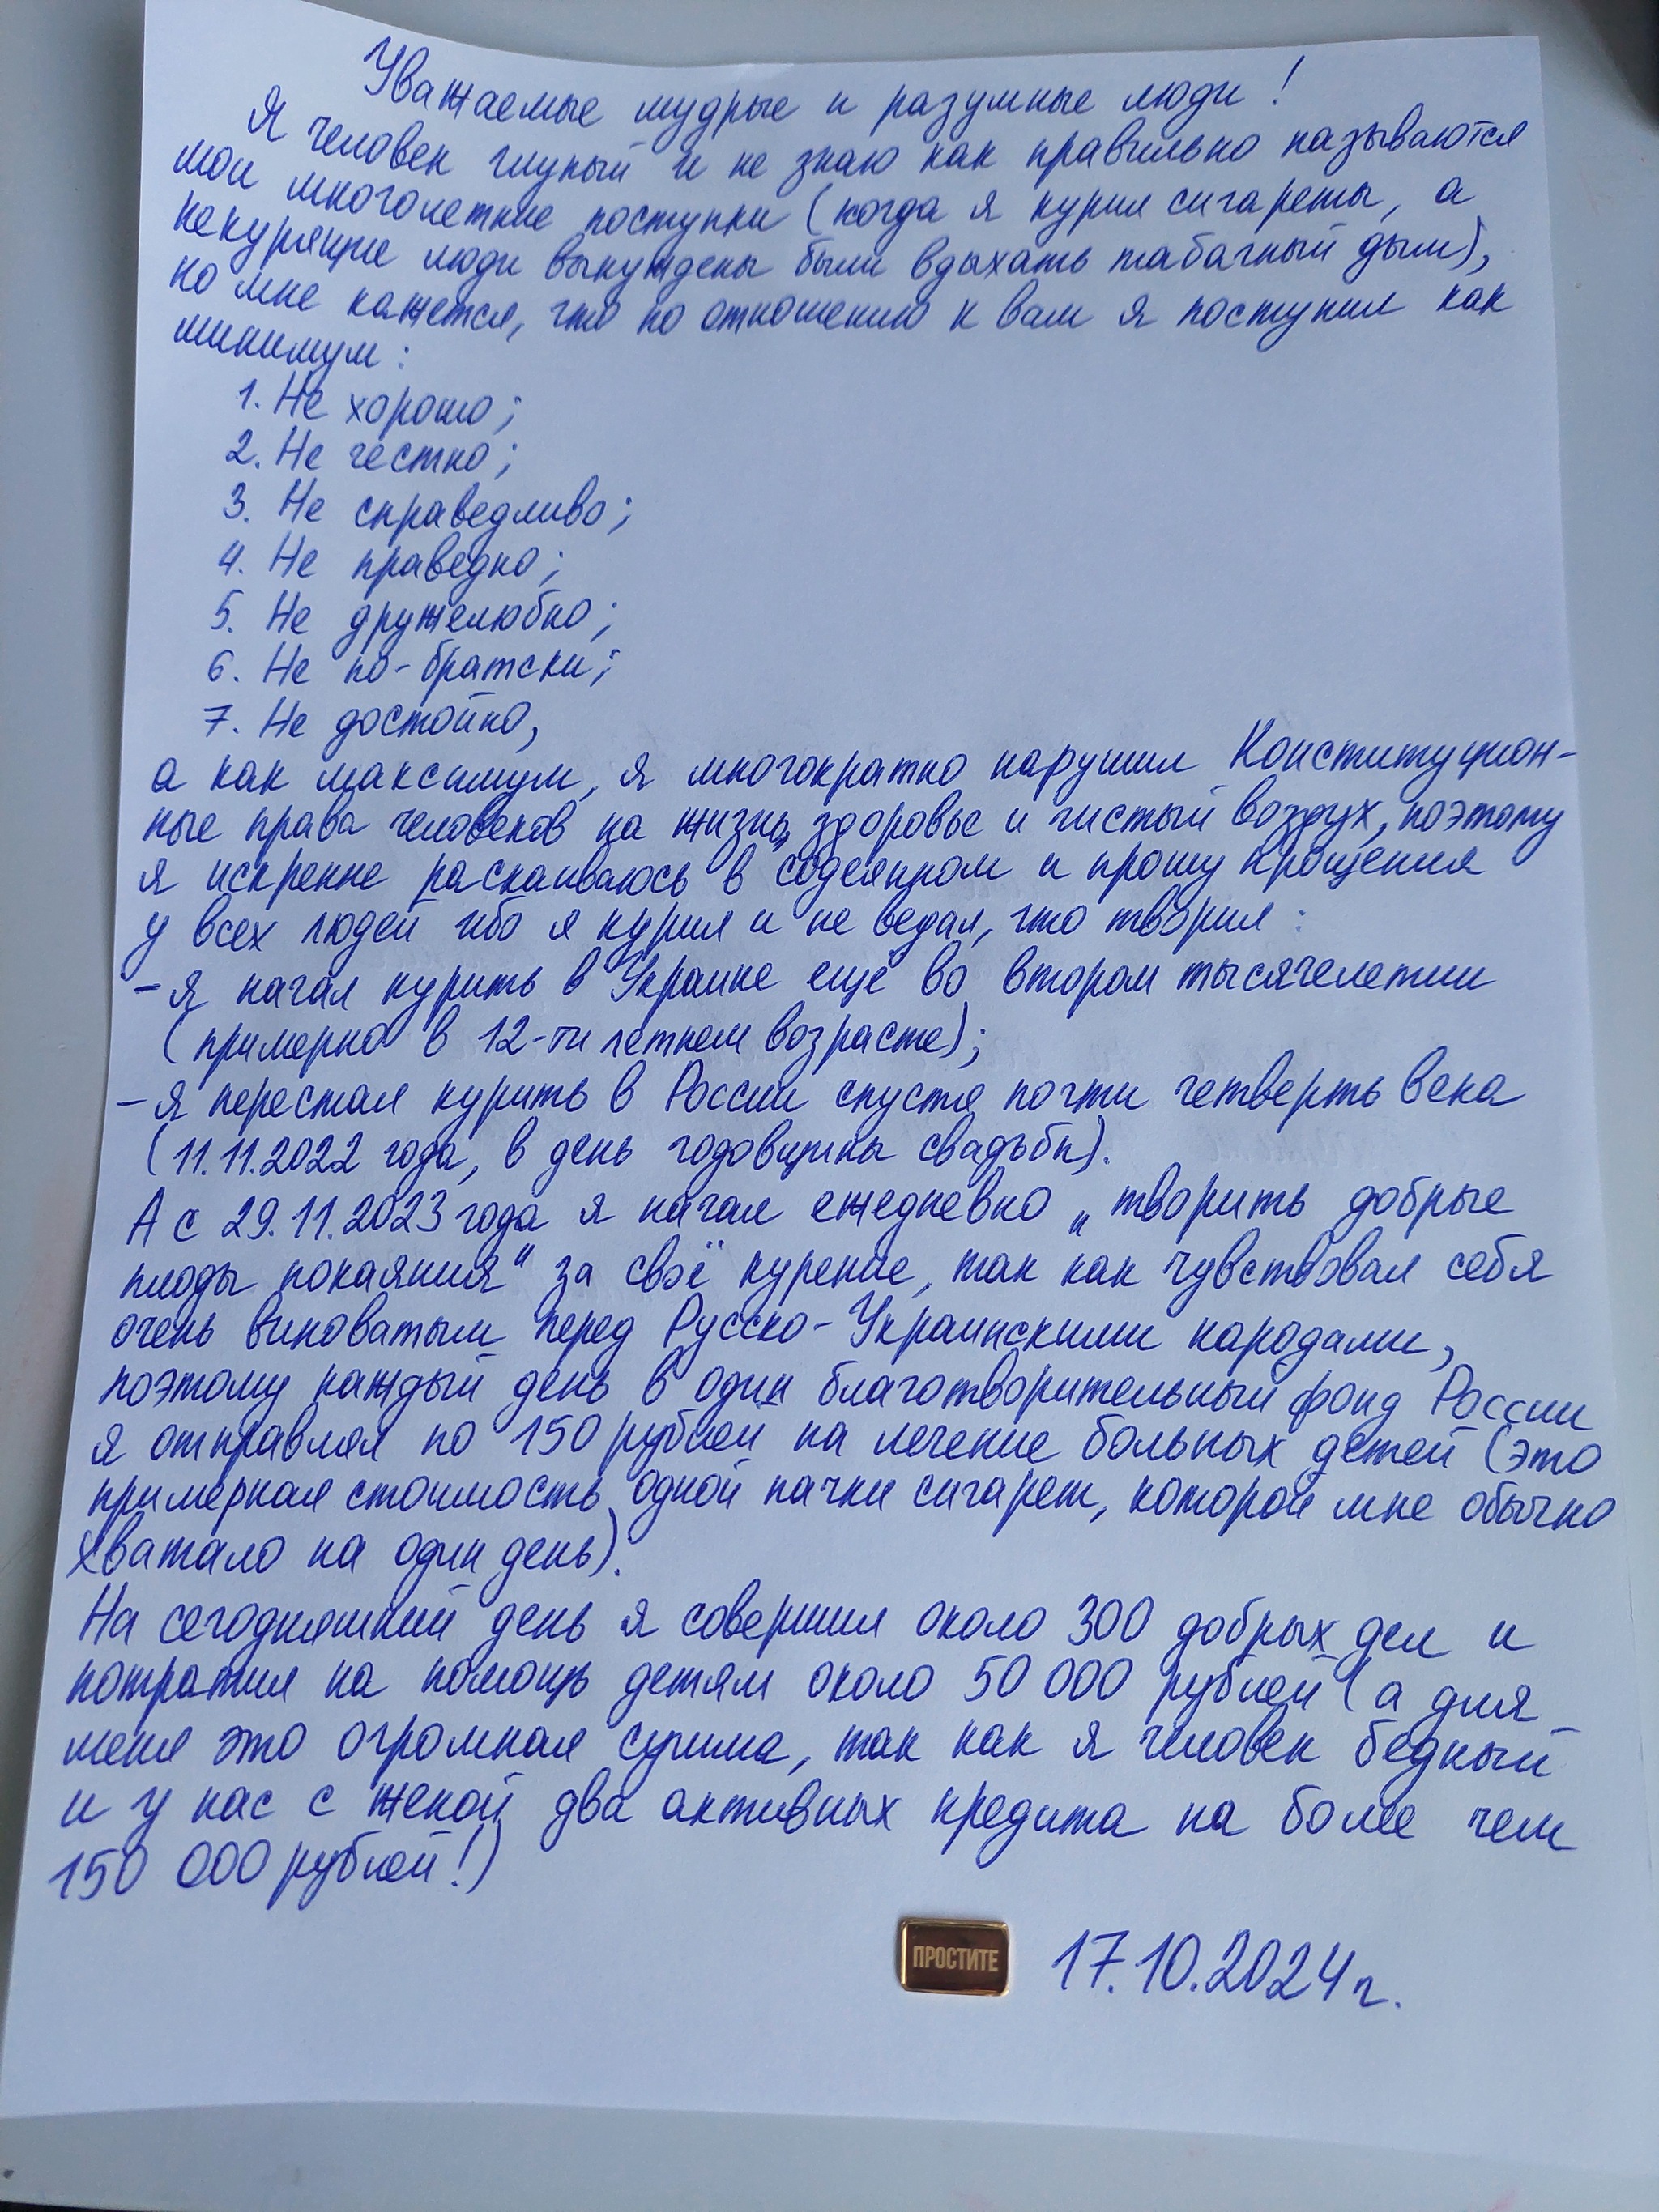 Уважаемые мудрые и разумные люди!
Я человек глупый и не знаю как правильно называются
мои многолетние поступки (когда я курил сигареты, а
некурящие люди вынуждены были вдыхать табачный дым),
но мне кажется, что по отношению к вам я поступил как
минимум:
1. Не хорошо;
2. Не честно;
3. Не справедливо;
4. Не праведно;
5. Не дружелюбно;
6. Не по-братски;
7. Не достойно,
а как максимум, я многократно нарушил Конституцион-
ные права человеков на жизнь, здоровье и чистый воздух, поэтому
я искренне раскаиваюсь в содеянном и прошу прощения
у всех людей ибо я курил и не ведал, что творил:
- я начал курить в Украине ещё во втором тысячелетии
(примерно в 12-ти летнем возрасте);
- я перестал курить в России спустя почти четверть века
(11.11.2022 года, в день годовщины свадьбы).
А с 29.11.2023 года я начал ежедневно „творить добрые
плоды покаяния" за своё курение, так как чувствовал себя
очень виноватым перед Русско-Украинскими народами,
поэтому каждый день в один благотворительный фонд России
я отправлял по 150 рублей на лечение больных детей (это
примерная стоимость одной пачки сигарет, которой мне обычно
хватало на один день).
На сегодняшний день я совершил около 300 добрых дел и
потратил на помощь детям около 50 000 рублей (а для
меня это огромная сумма, так как я человек бедный
и у нас с женой два активных кредита на более чем
150 000 рублей!)
ПРОСТИТЕ 17.10.2024г.